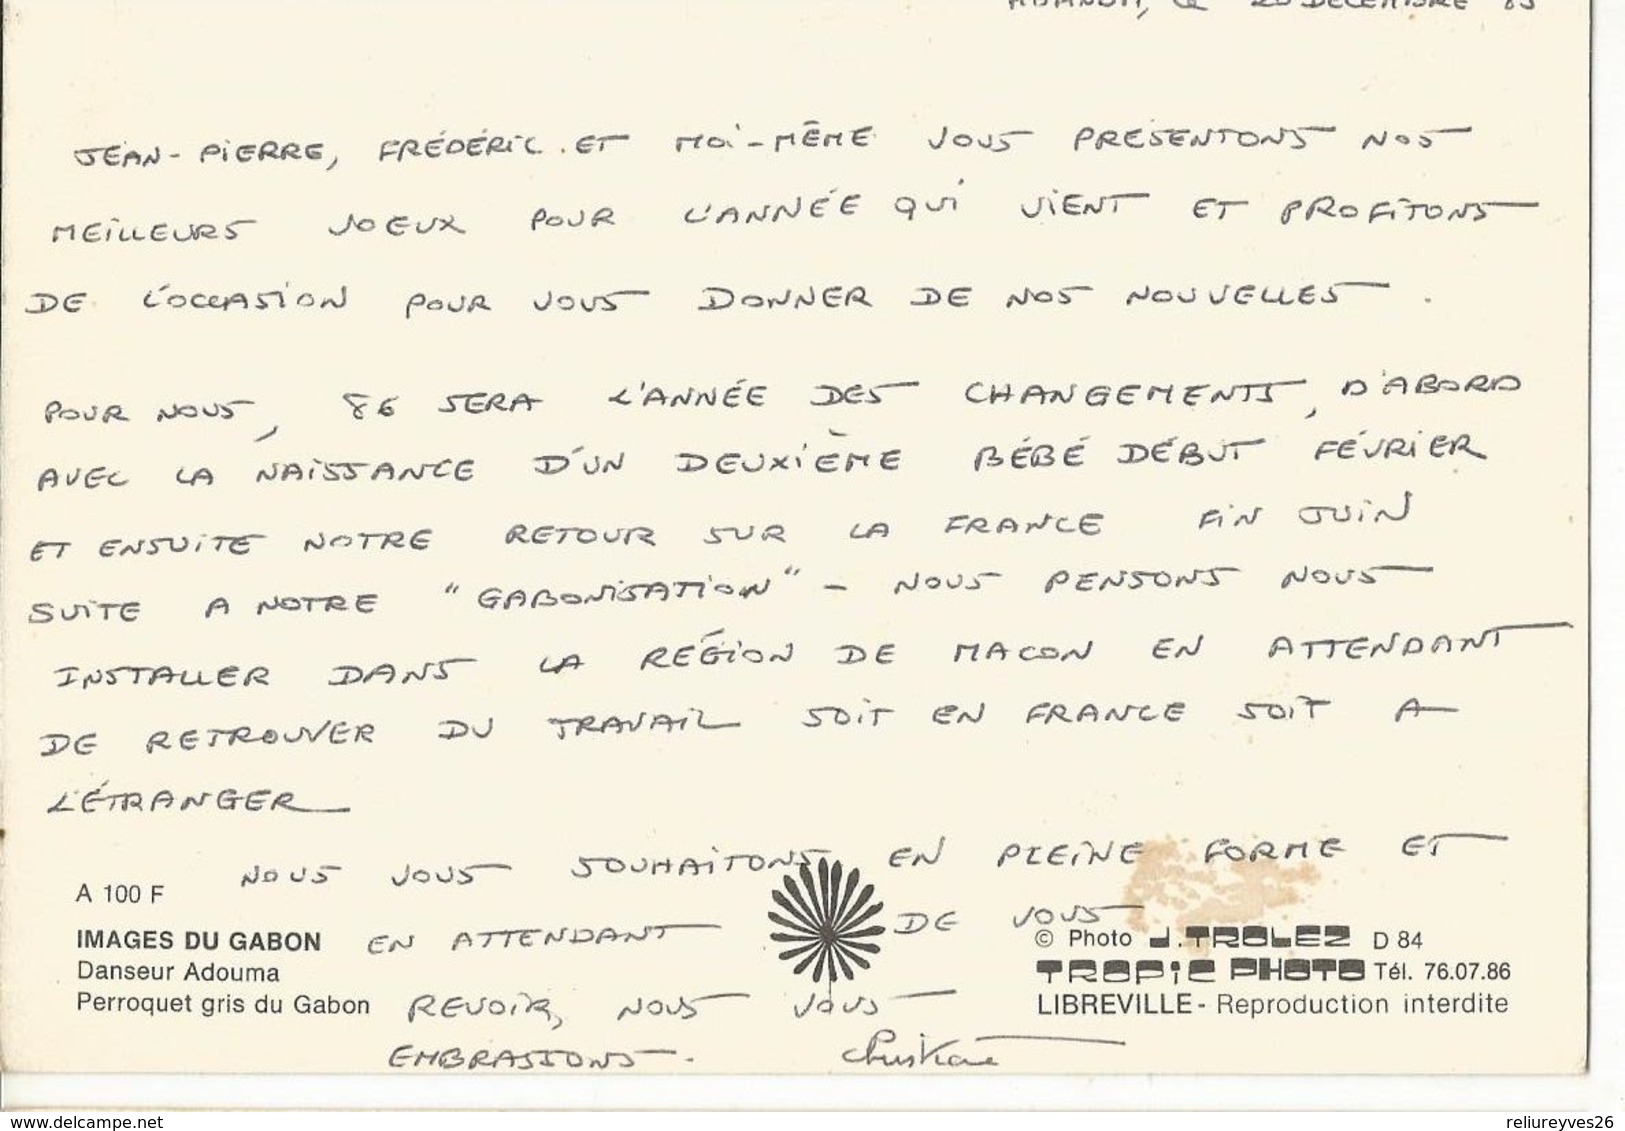 LE 20 DÉCEMBRE 85
JEAN-PIERRE, FRÉDÉRIC ET MOI-MÊME VOUS PRÉSENTONS NOS
MEILLEURS VOEUX POUR L'ANNÉE QUI VIENT ET PROFITONS
DE L'OCCASION POUR VOUS DONNER DE NOS NOUVELLES.
POUR NOUS, 86 SERA L'ANNÉE DES CHANGEMENTS, D'ABORD
AVEC LA NAISSANCE D'UN DEUXIÈME BÉBÉ DÉBUT FÉVRIER
ET ENSUITE NOTRE RETOUR SUR LA FRANCE FIN JUIN
SUITE A NOTRE "GABONISATION" - NOUS PENSONS NOUS
INSTALLER DANS LA RÉGION DE MACON EN ATTENDANT
DE RETROUVER DU TRAVAIL SOIT EN FRANCE SOIT A
L'ÉTRANGER
NOUS VOUS SOUHAITONS EN PLEINE FORME ET
EN ATTENDANT DE VOUS
REVOIR, NOUS VOUS
EMBRASSONS. Christiane
A 100 F
IMAGES DU GABON
Danseur Adouma
Perroquet gris du Gabon
© Photo J.TROLEZ D 84
TROPIC PHOTO Tél. 76.07.86
LIBREVILLE - Reproduction interdite
www.delcampe.net
reliureyves26